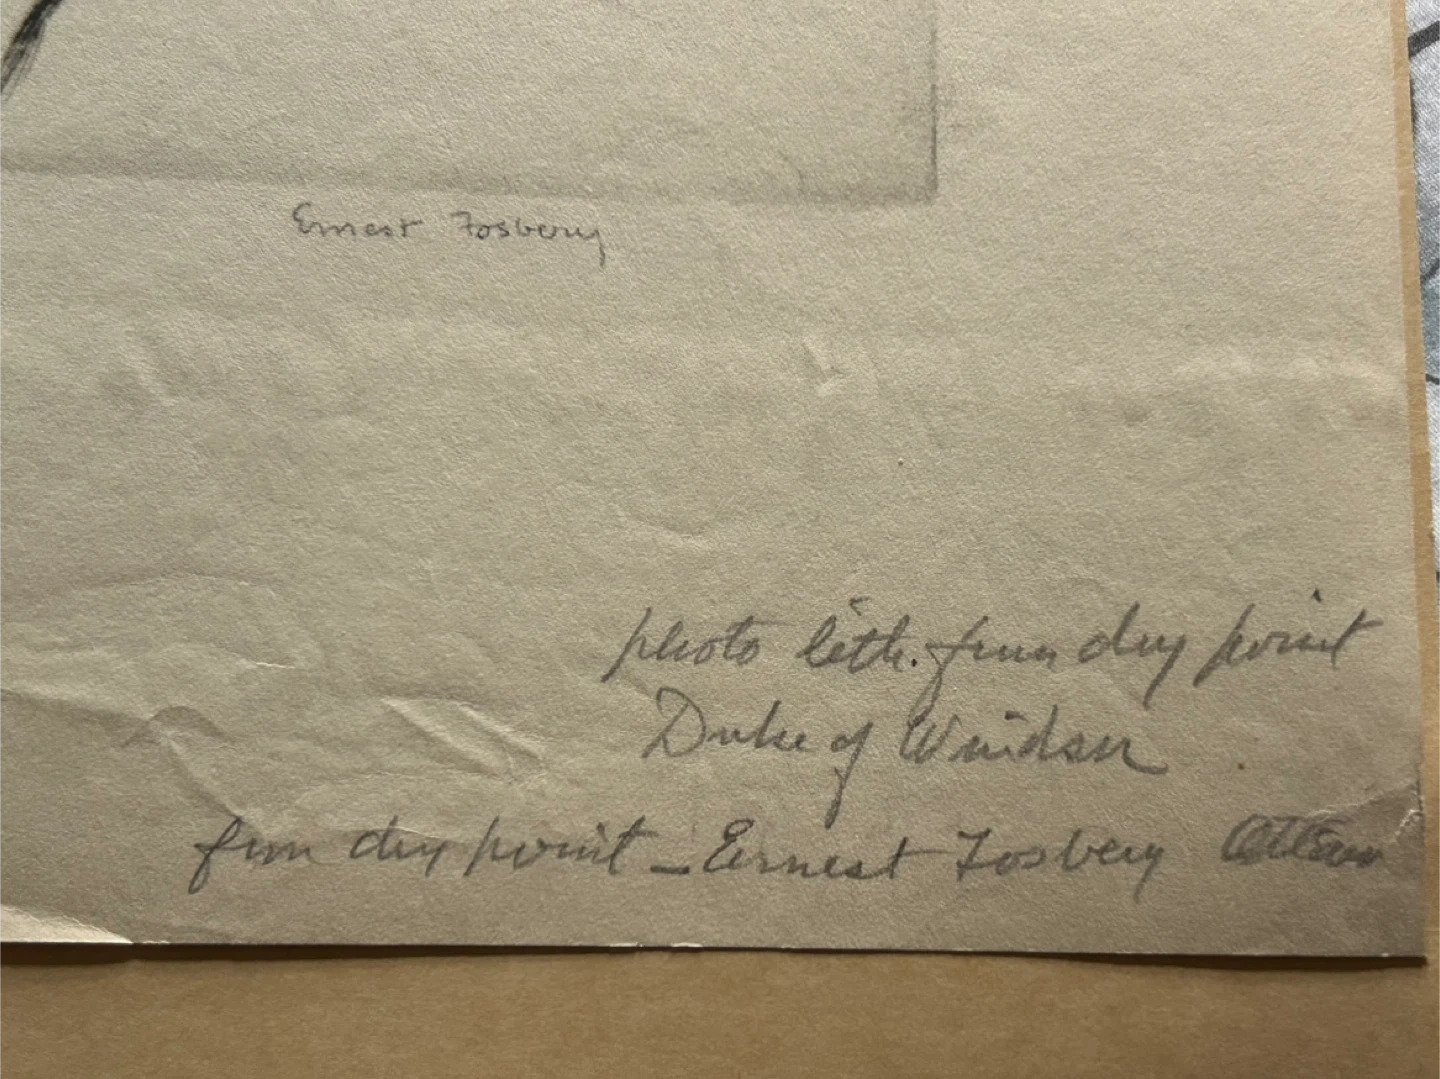 Ernest Fosbery
photo lith. from dry point
Duke of Windsor
from dry point - Ernest Fosbery Ottawa